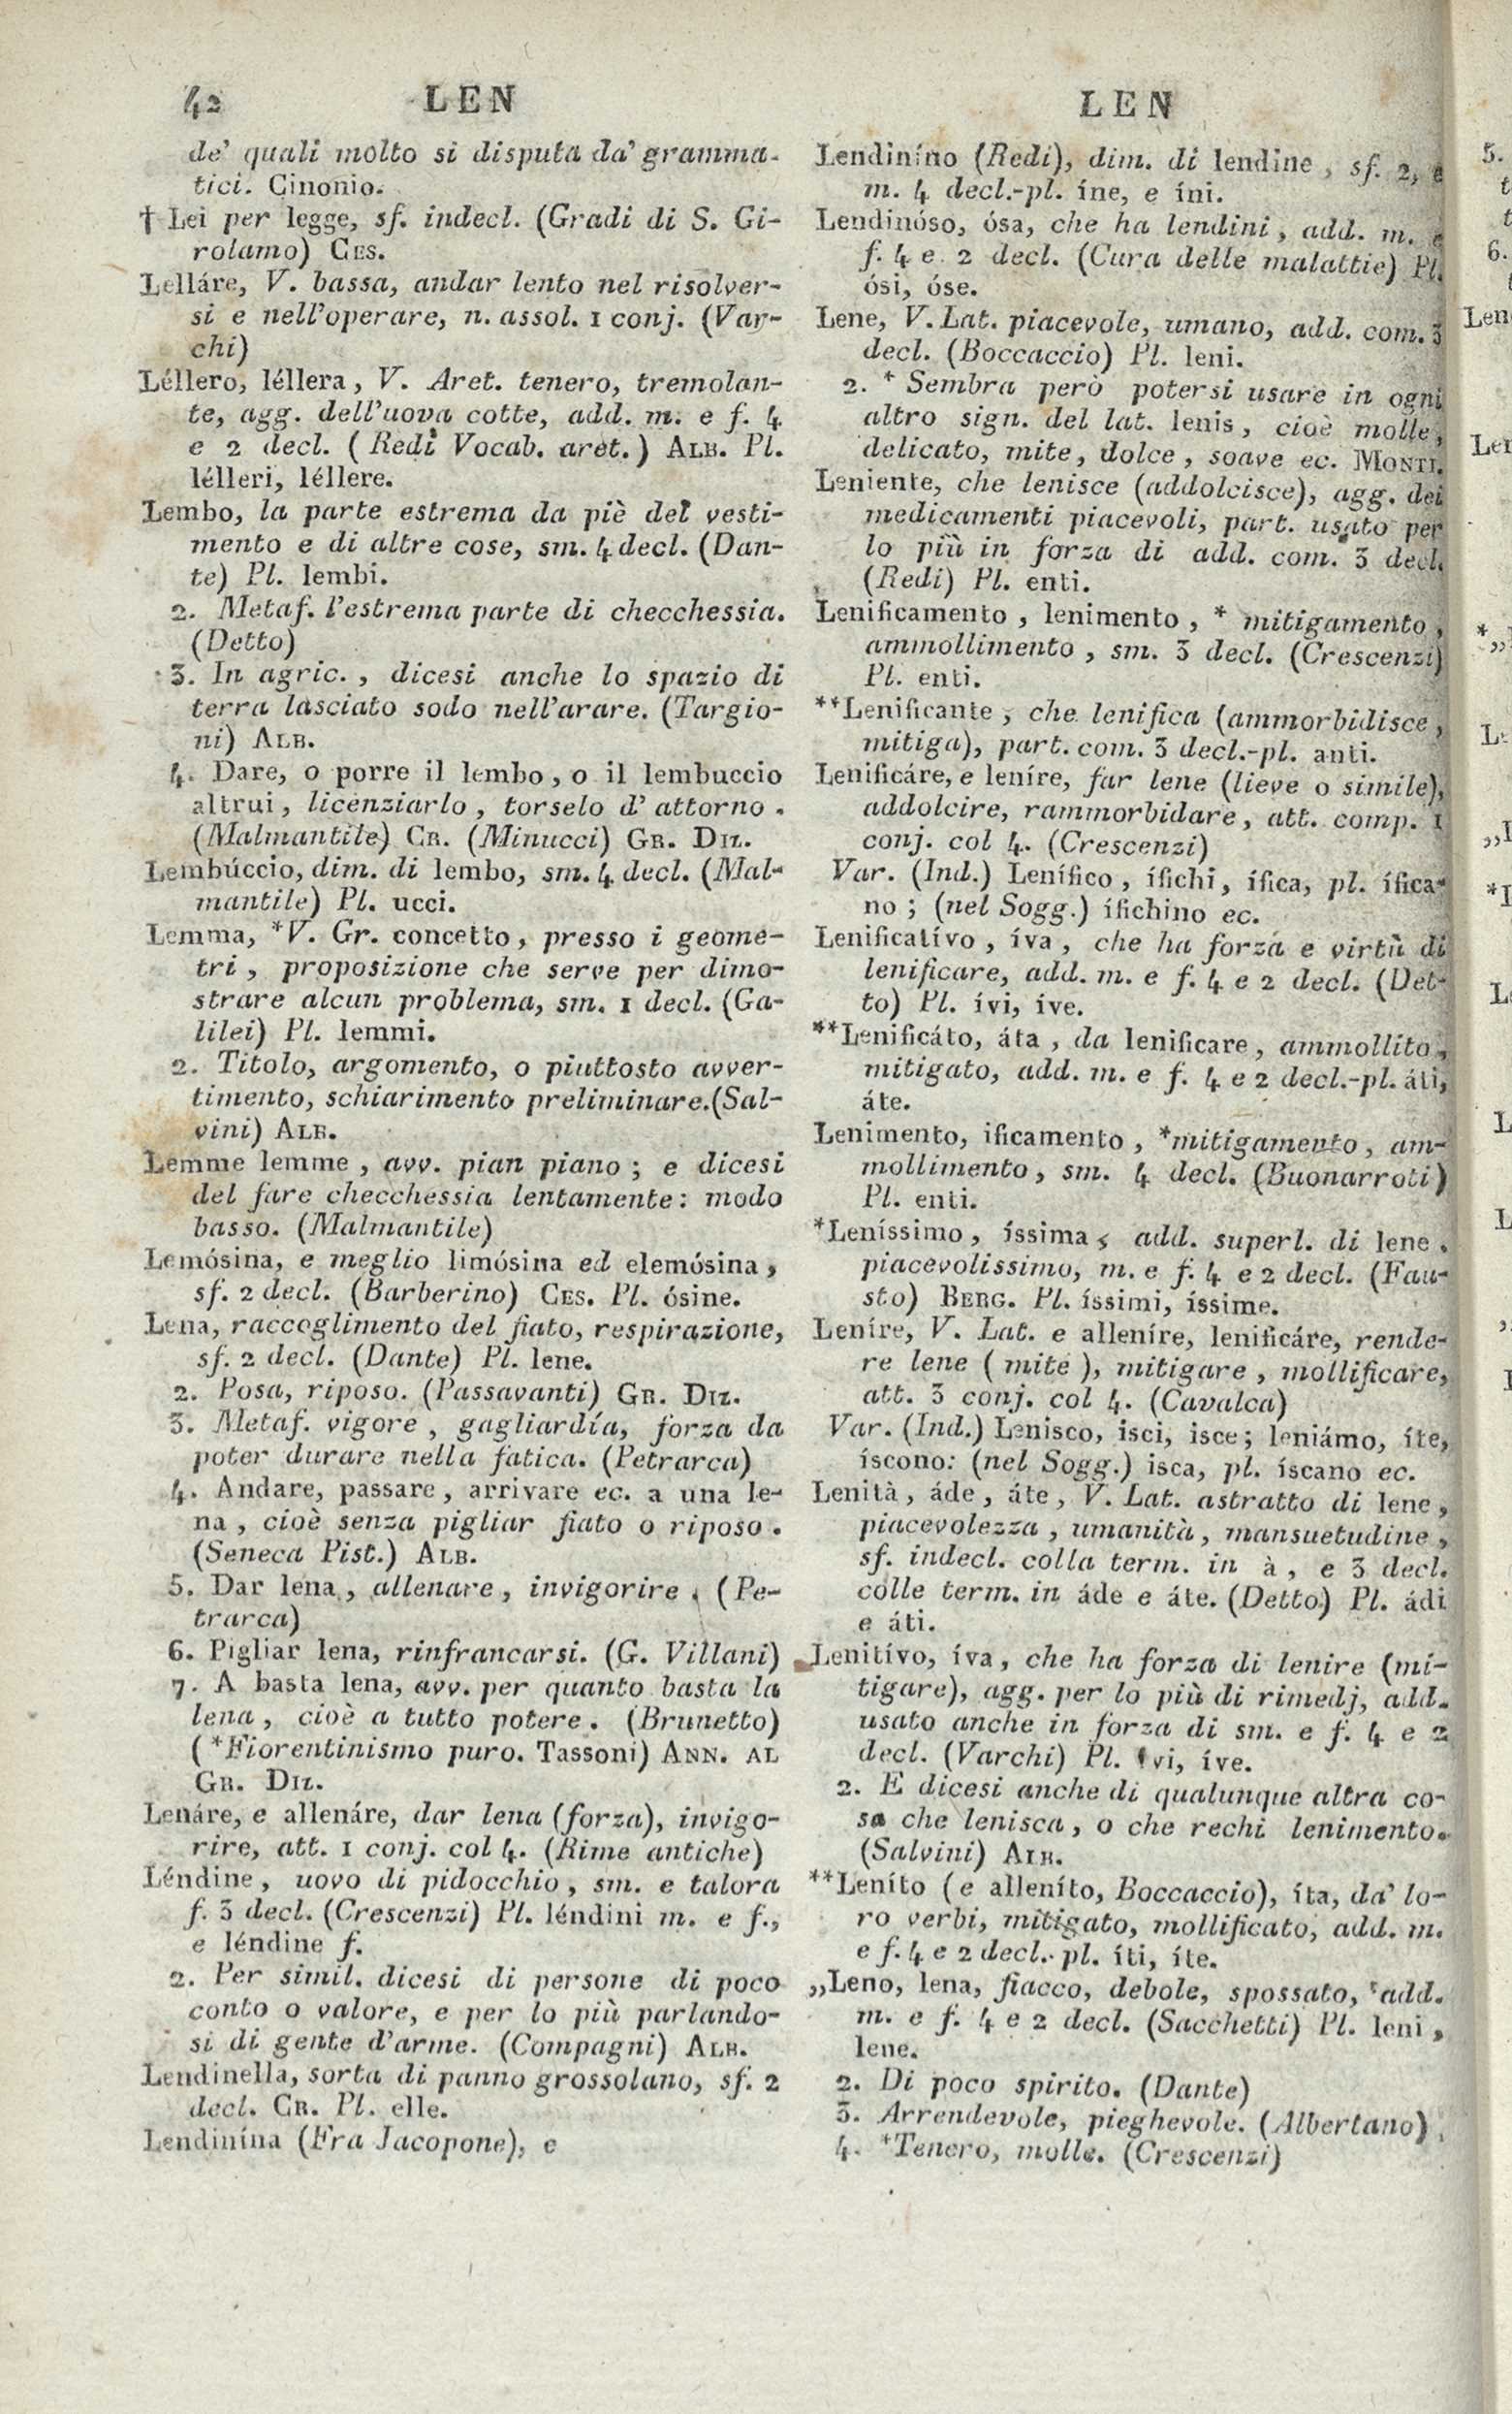 42 LEN
de' quali molto si disputa da' gramma-
tici. Cinonio.
† Lei per legge, sf. indecl. (Gradi di S. Gi-
rolamo) Ces.
Lelláre, V. bassa, andar lento nel risolver-
si e nell'operare, n. assol. 1 conj. (Var-
chi)
Léllero, léllera, V. Aret. tenero, tremolan-
te, agg. dell'uova cotte, add. m. e f. 4
e 2 decl. (Redi Vocab. aret.) Alb. Pl.
lélleri, léllere.
Lembo, la parte estrema da piè del vesti-
mento e di altre cose, sm. 4 decl. (Dan-
te) Pl. lembi.
2. Metaf. l'estrema parte di checchessia.
(Detto)
3. In agric., dicesi anche lo spazio di
terra lasciato sodo nell'arare. (Targio-
ni) Alb.
4. Dare, o porre il lembo, o il lembuccio
altrui, licenziarlo, torselo d' attorno.
(Malmantile) Cr. (Minucci) Gr. Diz.
Lembúccio, dim. di lembo, sm. 4 decl. (Mal-
mantile) Pl. ucci.
Lemma, *V. Gr. concetto, presso i geome-
tri, proposizione che serve per dimo-
strare alcun problema, sm. 1 decl. (Ga-
lilei) Pl. lemmi.
2. Titolo, argomento, o piuttosto avver-
timento, schiarimento preliminare. (Sal-
vini) Alb.
Lemme lemme, avv. pian piano; e dicesi
del fare checchessia lentamente: modo
basso. (Malmantile)
Lemósina, e meglio limósina ed elemósina,
sf. 2 decl. (Barberino) Ces. Pl. ósine.
Lena, raccoglimento del fiato, respirazione,
sf. 2 decl. (Dante) Pl. lene.
2. Posa, riposo. (Passavanti) Gr. Diz.
3. Metaf. vigore, gagliardía, forza da
poter durare nella fatica. (Petrarca)
4. Andare, passare, arrivare ec. a una le-
na, cioè senza pigliar fiato o riposo.
(Seneca Pist.) Alb.
5. Dar lena, allenare, invigorire. (Pe-
trarca)
6. Pigliar lena, rinfrancarsi. (G. Villani)
7. A basta lena, avv. per quanto basta la
lena, cioè a tutto potere. (Brunetto)
(*Fiorentinismo puro. Tassoni) Ann. al
Gr. Diz.
Lenáre, e allenáre, dar lena (forza), invigo-
rire, att. 1 conj. col 4. (Rime antiche)
Léndine, uovo di pidocchio, sm. e talora
f. 3 decl. (Crescenzi) Pl. léndini m. e f.,
e léndine f.
2. Per simil. dicesi di persone di poco
conto o valore, e per lo più parlando-
si di gente d'arme. (Compagni) Alb.
Lendinella, sorta di panno grossolano, sf. 2
decl. Cr. Pl. elle.
Lendinína (Fra Jacopone), e
LEN
Lendiníno (Redi), dim. di lendine, sf. 2, e
m. 4 decl.-pl. íne, e íni.
Lendinóso, ósa, che ha lendini, add. m. e
f. 4 e 2 decl. (Cura delle malattie) Pl.
ósi, óse.
Lene, V. Lat. piacevole, umano, add. com. 3
decl. (Boccaccio) Pl. leni.
2. * Sembra però potersi usare in ogni
altro sign. del lat. lenis, cioè molle,
delicato, mite, dolce, soave ec. Monti.
Leniente, che lenisce (addolcisce), agg. dei
medicamenti piacevoli, part. usato per
lo più in forza di add. com. 3 decl.
(Redi) Pl. enti.
Lenificamento, lenimento, * mitigamento,
ammollimento, sm. 3 decl. (Crescenzi)
Pl. enti.
**Lenificante, che lenifica (ammorbidisce,
mitiga), part. com. 3 decl.-pl. anti.
Lenificáre, e leníre, far lene (lieve o simile),
addolcire, rammorbidare, att. comp. 1
conj. col 4. (Crescenzi)
Var. (Ind.) Lenífico, ífichi, ífica, pl. ífica-
no; (nel Sogg.) ífichino ec.
Lenificatívo, íva, che ha forza e virtù di
lenificare, add. m. e f. 4 e 2 decl. (Det-
to) Pl. ívi, íve.
**Lenificáto, áta, da lenificare, ammollito,
mitigato, add. m. e f. 4 e 2 decl.-pl. áti,
áte.
Lenimento, ificamento, *mitigamento, am-
mollimento, sm. 4 decl. (Buonarroti)
Pl. enti.
*Leníssimo, íssima, add. superl. di lene.
piacevolissimo, m. e f. 4 e 2 decl. (Fau-
sto) Berg. Pl. íssimi, íssime.
Leníre, V. Lat. e alleníre, lenificáre, rende-
re lene (mite), mitigare, mollificare,
att. 3 conj. col 4. (Cavalca)
Var. (Ind.) Lenisco, isci, isce; leniámo, íte,
íscono: (nel Sogg.) isca, pl. íscano ec.
Lenità, áde, áte, V. Lat. astratto di lene,
piacevolezza, umanità, mansuetudine,
sf. indecl. colla term. in à, e 3 decl.
colle term. in áde e áte. (Detto) Pl. ádi
e áti.
Lenitívo, íva, che ha forza di lenire (mi-
tigare), agg. per lo più di rimedj, add.
usato anche in forza di sm. e f. 4 e 2
decl. (Varchi) Pl. ívi, íve.
2. E dicesi anche di qualunque altra co-
sa che lenisca, o che rechi lenimento.
(Salvini) Alb.
**Leníto (e alleníto, Boccaccio), íta, da' lo-
ro verbi, mitigato, mollificato, add. m.
e f. 4 e 2 decl.-pl. íti, íte.
„Leno, lena, fiacco, debole, spossato, *add.
m. e f. 4 e 2 decl. (Sacchetti) Pl. leni,
lene.
2. Di poco spirito. (Dante)
3. Arrendevole, pieghevole. (Albertano)
4. *Tenero, molle. (Crescenzi)
5.
6.
Len